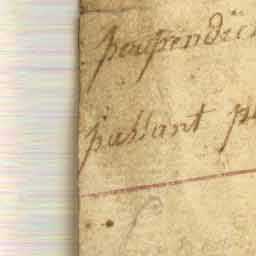 perpendic
passant p